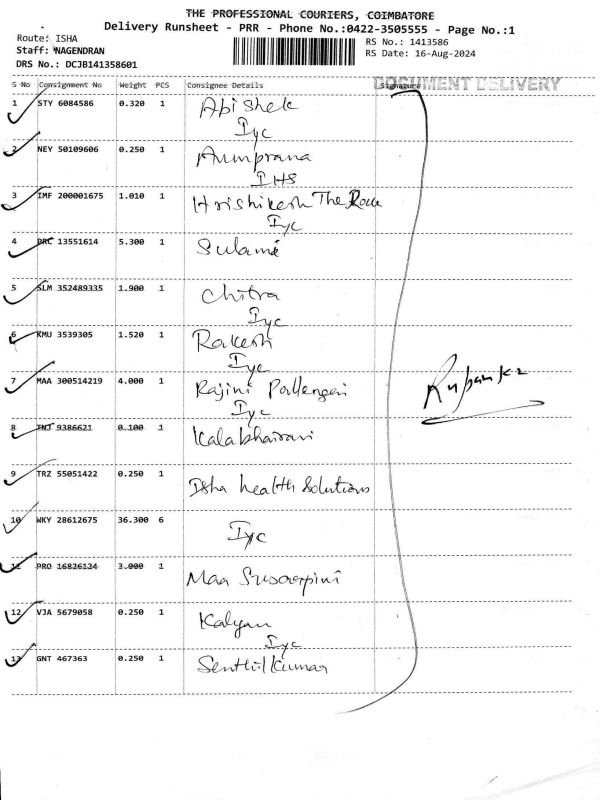 THE PROFESSIONAL COURIERS, COIMBATORE
Delivery Runsheet - PRR - Phone No.:0422-3505555 - Page No.:1
Route: ISHA
RS No.: 1413586
Staff: NAGENDRAN
RS Date: 16-Aug-2024
DRS No.: DCJB141358601
DOCUMENT DELIVERY
S No Consignment No Weight PCS Consignee Details Signature
1 STY 6084586 0.320 1 Abishek
Iyc
2 NEY 50109606 0.250 1
IHS
3 IMF 200001675 1.010 1 Hrishikesh The
Iyc
4 BRC 13551614 5.300 1
5 SLM 352489335 1.900 1 Chitra
Iyc
6 KMU 3539305 1.520 1 Rakesh
Iyc
7 MAA 300514219 4.000 1 Rajini
Iyc
8 TNJ 9386621 0.100 1 Kalabhairavi
9 TRZ 55051422 0.250 1 Isha health Solutions
10 WKY 28612675 36.300 6 Iyc
11 PRO 16826124 3.000 1 Maa
12 VJA 5679058 0.250 1 Kalyan
Iyc
13 GNT 467363 0.250 1 Senthilkumar